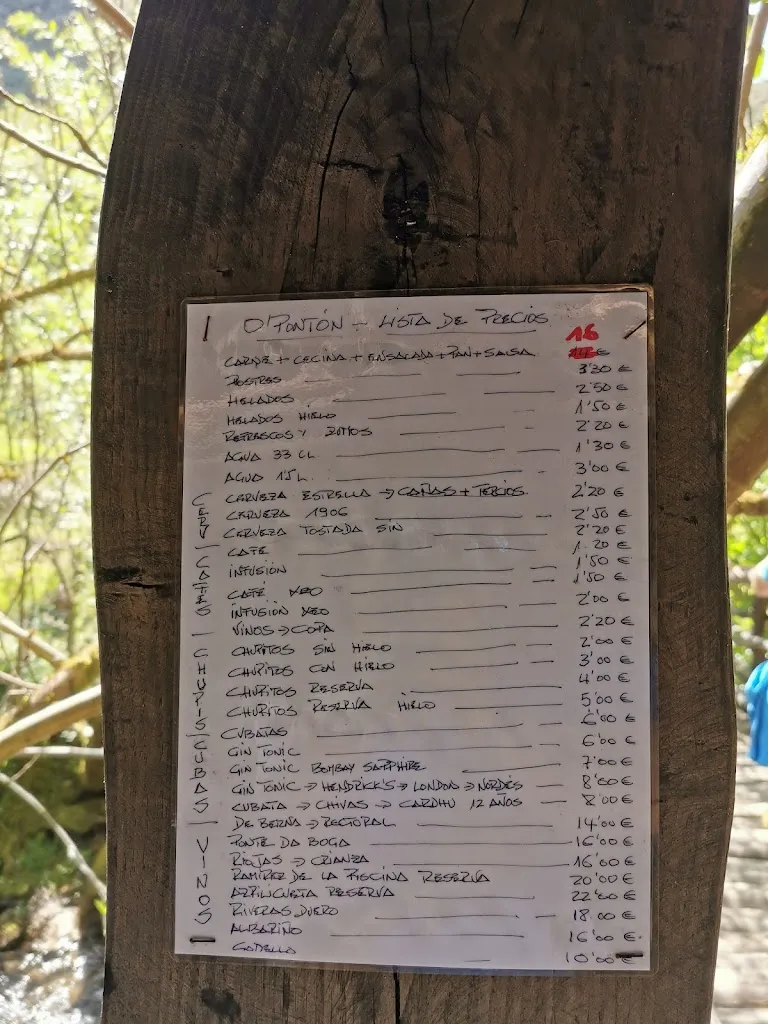 O'PONTÓN - LISTA DE PRECIOS
CARNE + CECINA + ENSALADA + PAN + SALSA 16 €
POSTRES 3'30 €
HELADOS 2'50 €
HELADOS HIELO 1'50 €
REFRESCOS Y ZUMOS 2'20 €
AGUA 33 CL 1'30 €
AGUA 1'5 L. 3'00 €
CERV
CERVEZA ESTRELLA → CAÑAS + TERCIOS 2'20 €
CERVEZA 1906 2'50 €
CERVEZA TOSTADA SIN 2'20 €
CAFÉS
CAFÉ 1'20 €
INFUSIÓN 1'50 €
CAFÉ XEO 1'50 €
INFUSIÓN XEO 2'00 €
VINOS → COPA 2'20 €
CHUPIS
CHUPITOS SIN HIELO 2'00 €
CHUPITOS CON HIELO 3'00 €
CHUPITOS RESERVA 4'00 €
CHUPITOS RESERVA HIELO 5'00 €
CUBAS
CUBATAS 6'00 €
GIN TONIC 6'00 €
GIN TONIC BOMBAY SAPPHIRE 7'00 €
GIN TONIC → HENDRICK'S → LONDON → NORDÉS 8'00 €
CUBATA → CHIVAS → CARDHU 12 AÑOS 8'00 €
VINOS
DE BERNA → RECTORAL 14'00 €
PONTE DA BOGA 16'00 €
RIOJAS → CRIANZA 16'00 €
RAMIREZ DE LA PISCINA RESERVA 20'00 €
AZPILICUETA RESERVA 22'00 €
RIVERAS DUERO 18.00 €
ALBARIÑO 16'00 €
GODELLO 10'00 €